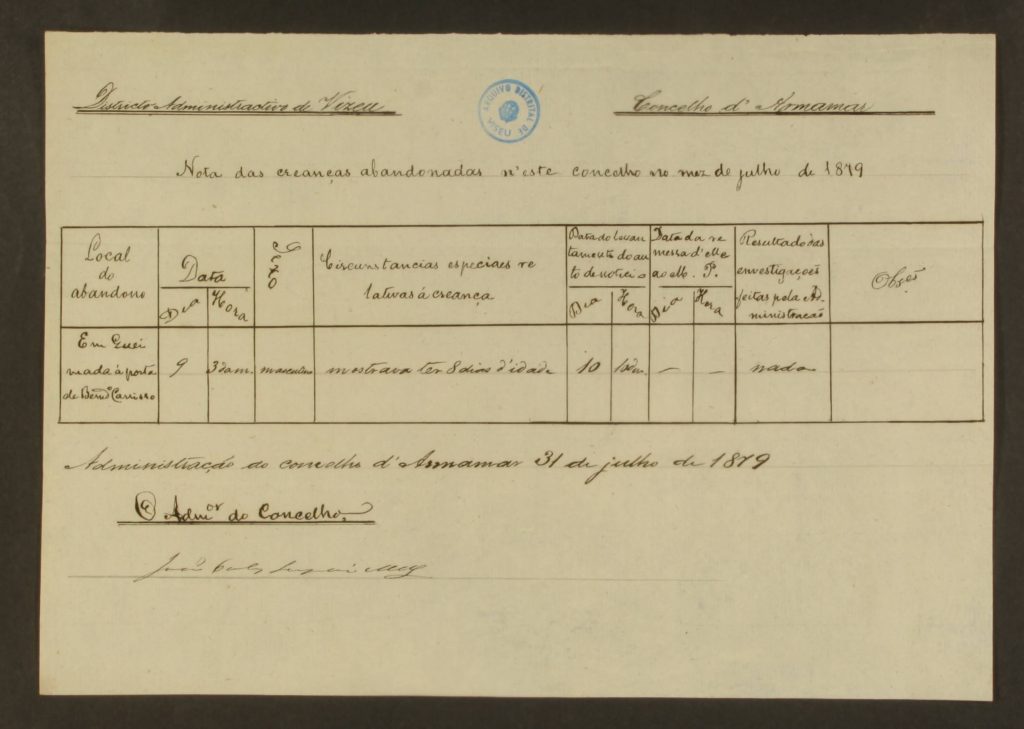 Districto Administractivo de Vizeu
ARQUIVO DISTRITAL DE VISEU
Concelho d'Armamar
Nota das creanças abandonadas n'este concelho no mez de julho de 1879
Local
do
abandono
Data
Dia Hora
Sexo
Circunstancias especiaes re
lativas á creança
Data do levan
tamento do au
to de noticia
Dia Hora
Data da re
messa d'elle
ao M. P.
Dia Hora
Resultado das
envestigações
feitas pela Ad-
ministração
Obsões
Em Quei
mada á porta
de
9
3 da m.
masculino
mostrava ter 8 dias d'idade
10
— —
nada
Administração do concelho d'Armamar 31 de julho de 1879
O Admor do Concelho,
João